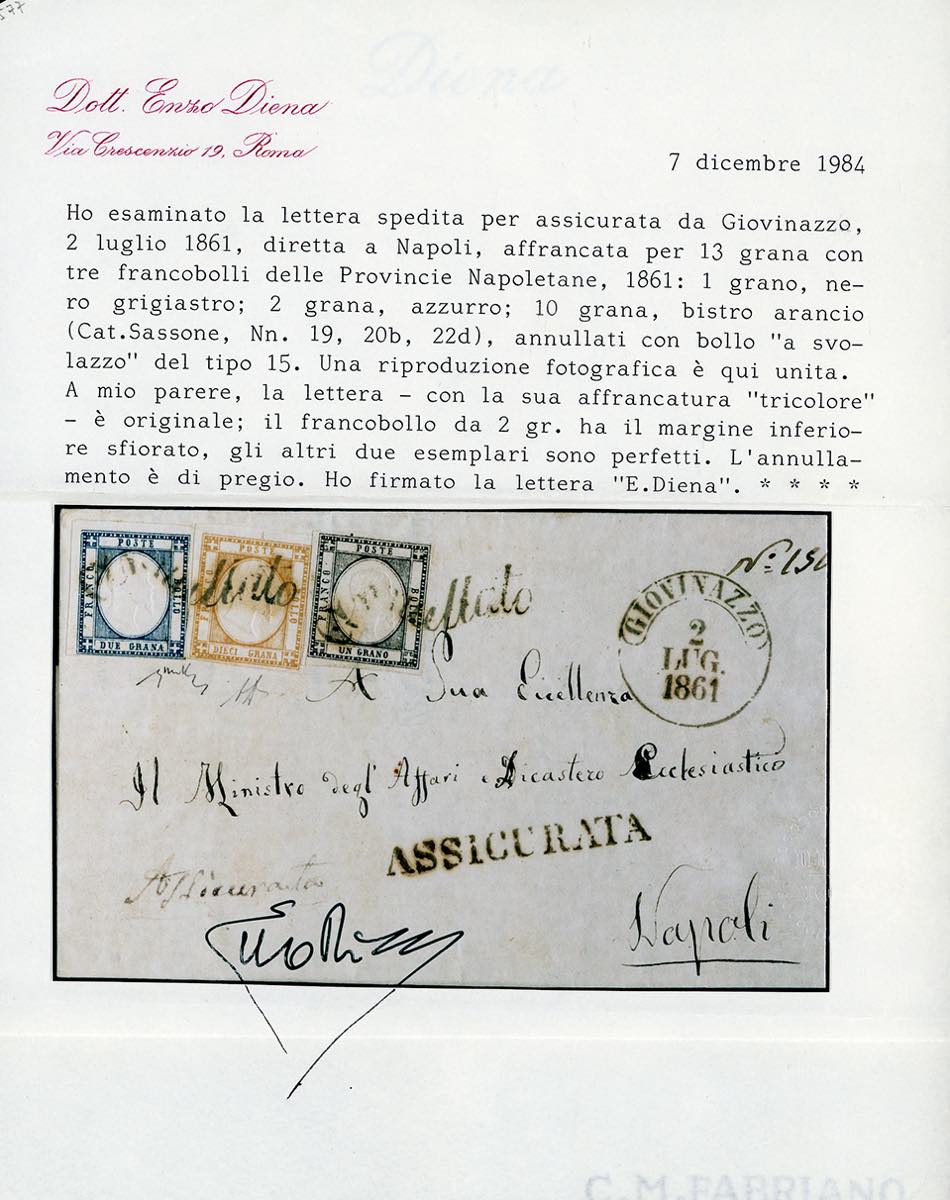 577
Diena
Dott. Enzo Diena
Via Crescenzio 19, Roma
7 dicembre 1984
Ho esaminato la lettera spedita per assicurata da Giovinazzo,
2 luglio 1861, diretta a Napoli, affrancata per 13 grana con
tre francobolli delle Provincie Napoletane, 1861: 1 grano, ne-
ro grigiastro; 2 grana, azzurro; 10 grana, bistro arancio
(Cat.Sassone, Nn. 19, 20b, 22d), annullati con bollo "a svo-
lazzo" del tipo 15. Una riproduzione fotografica è qui unita.
A mio parere, la lettera - con la sua affrancatura "tricolore"
- è originale; il francobollo da 2 gr. ha il margine inferio-
re sfiorato, gli altri due esemplari sono perfetti. L'annulla-
mento è di pregio. Ho firmato la lettera "E.Diena". * * * *
POSTE FRANCO BOLLO DUE GRANA
POSTE FRANCO BOLLO DIECI GRANA
POSTE FRANCO BOLLO UN GRANO
Nº 150
GIOVINAZZO
2
LUG.
1861
A Sua Eccellenza
Il Ministro degl' Affari e Dicastero Ecclesiastico
ASSICURATA
Assicurata
Napoli
C.M.FABRIANO